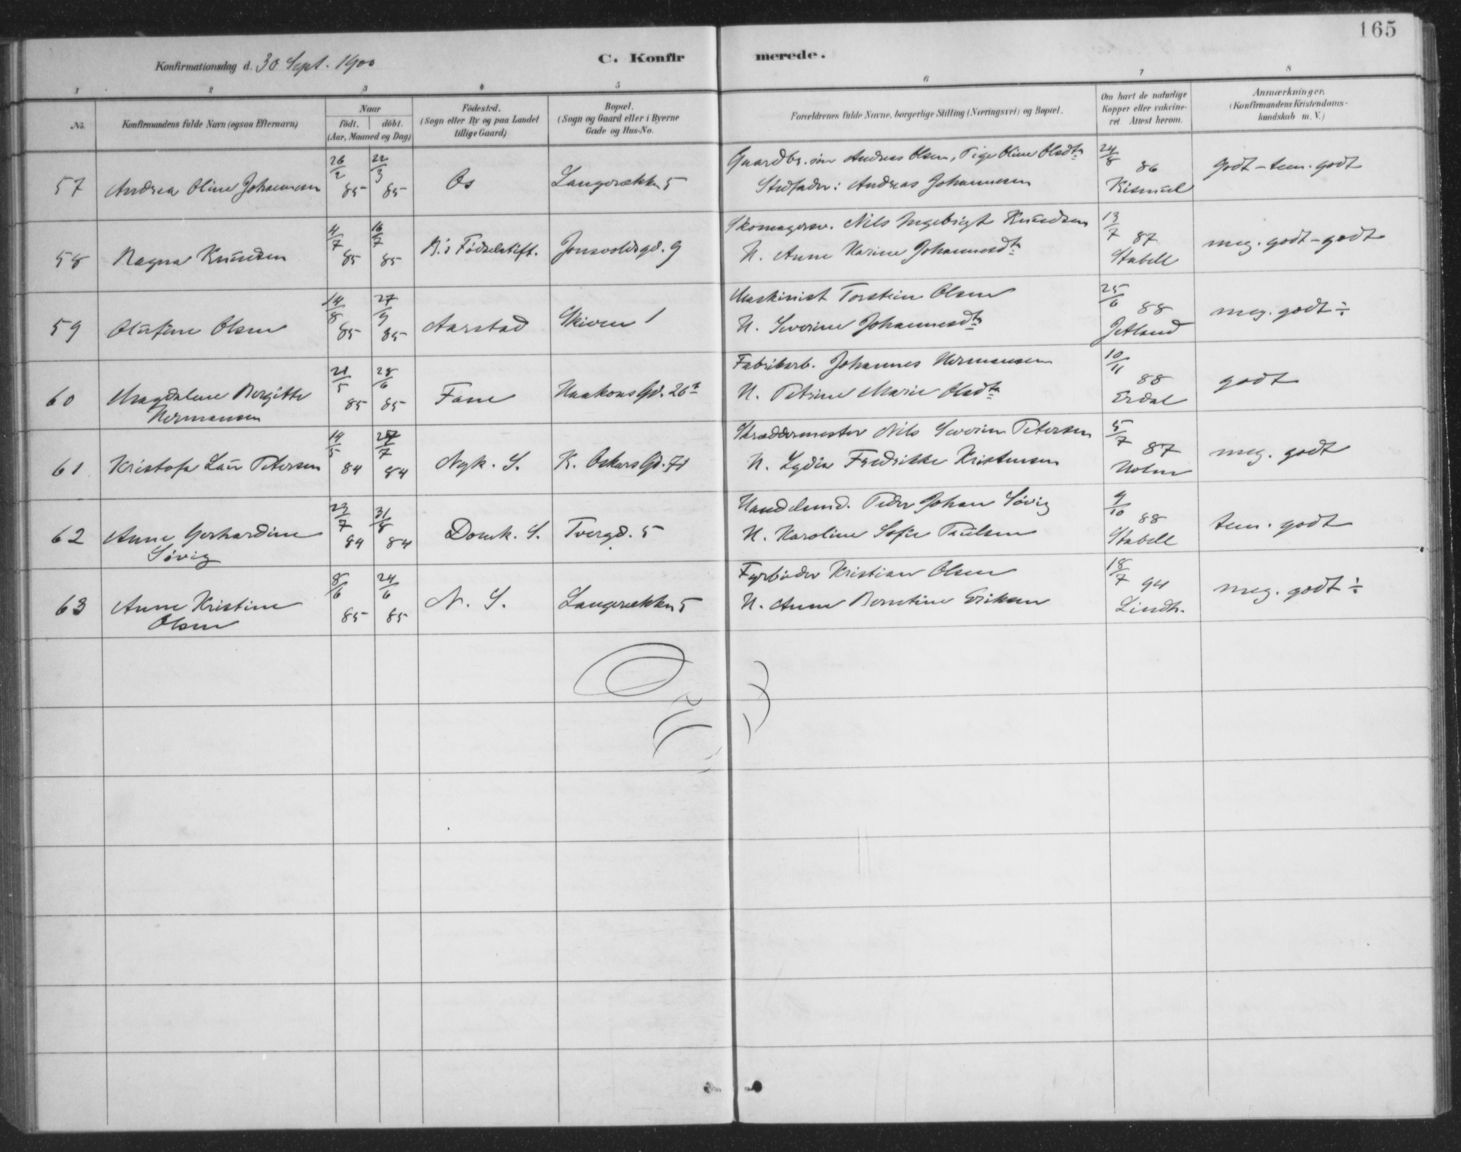 165
Konfirmationsdag d. 30 Sept. 1900
C. Konfirmerede.
1 2 3 4 5 6 7 8
No. Konfirmandens fulde Navn (ogsaa Efternavn) Naar født. døbt. (Aar, Maaned og Dag) Fødested. (Sogn eller By og paa Landet tillige Gaard) Bopæl. (Sogn og Gaard eller i Byerne Gade og Hus-No. Forældrenes fulde Navne, borgerlige Stilling (Næringsvei) og Bopæl. Om havt de naturlige Kopper eller vakcineret. Attest herom. Anmærkninger. (Konfirmandens Kristendomskundskab m. V.)
57 Andrea Oline Johannesen 26/2 85 22/3 85 Os Langerækken 5 Gaardbr. søn Andreas Olsen, Pige Oline Olsdtr 24/8 86 godt – tem. godt
Stedfader: Andreas Johannesen
58 Ragna Knudsen 4/7 85 16/7 85 B.'s Fødselstift. Jonsvoldsgd. 9 Skomagersv. Nils Ingebrigt Knudsen 13/7 87 Stabell meg. godt – godt
H. Anne Karine Johannesdtr
59 Olufine Olsen 14/8 85 27/9 85 Aarstad Skiven 1 Maskinist Torstein Olsen 25/6 88 Jetland meg. godt ÷
H. Severine Johannesdtr
60 Magdalene Bergitte Hermansen 21/5 85 28/6 85 Fane Haakons Gd. 26 Fabrikarb. Johannes Hermansen 10/11 88 Erdal godt
H. Petrine Marie Olsdtr
61 Kristofa Lau Petersen 19/5 84 27/7 84 Nyk. S. K. Oskars Gd. 71 Skræddermester Nils Severin Petersen 5/7 87 Holm meg. godt
H. Lydia Fredrikke Kristensen
62 Anne Gerhardine Søvig 29/7 84 31/8 84 Domk. S. Tvergd. 5 Handelsmd. Peder Johan Søvig 9/10 88 Stabell tem. godt
H. Karoline Sofie Paulsen
63 Anne Kristine Olsen 8/6 85 24/6 85 N. S. Langerækken 5 Fyrbøder Kristian Olsen 18/7 94 Lindh. meg. godt ÷
H. Anne Berntine Eriksen